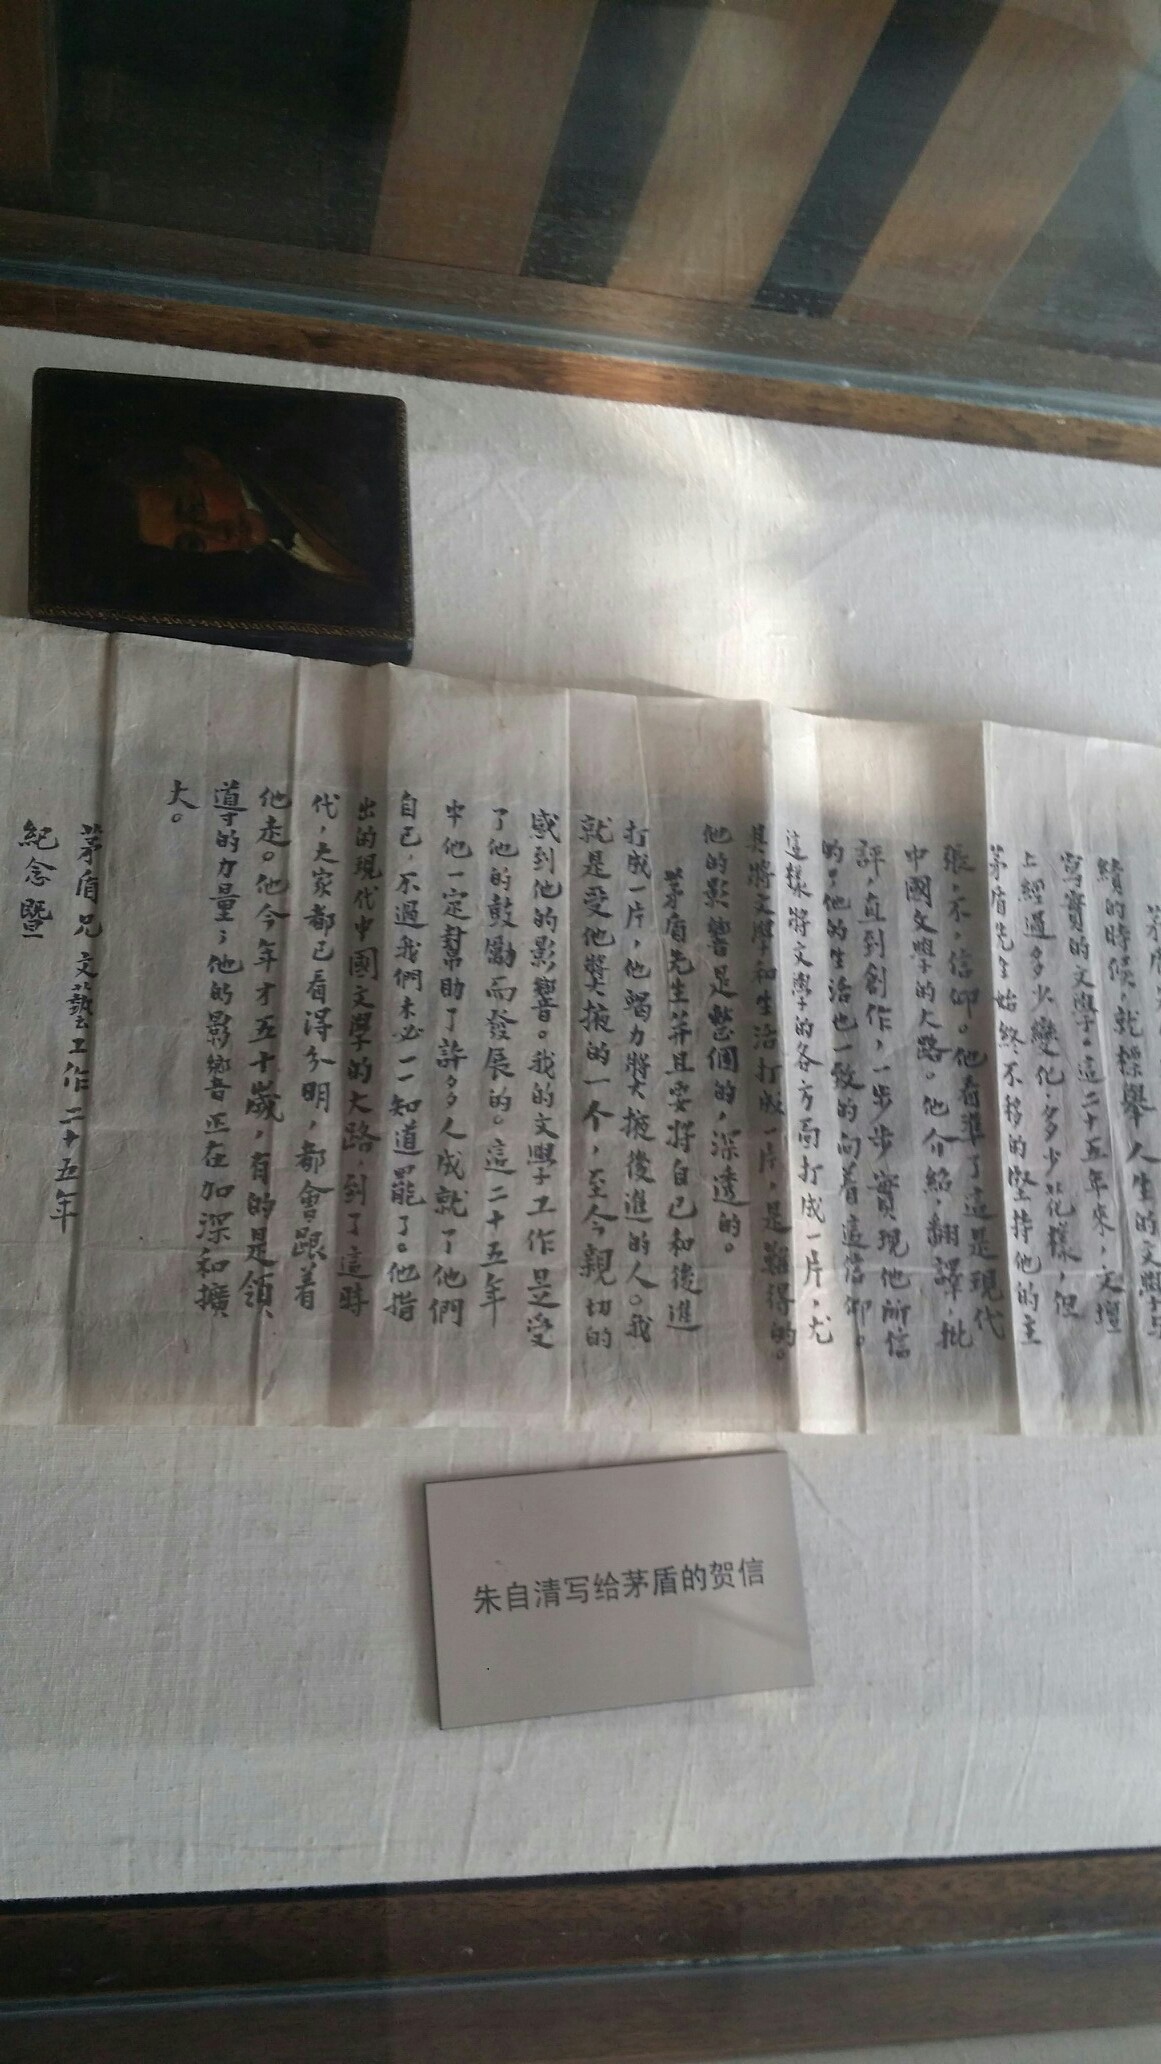 績的時候，就標舉人生的文學与
寫實的文學。這二十五年來，文壇
上經過多少變化，多少花樣，但
茅盾先生始終不移的堅持他的主
張，不，信仰。他看準了這是現代
中國文學的大路。他介紹，翻譯，批
評，直到創作，一步步實現他所信
的，他的生活也一致的向着這信仰。
這樣將文學的各方面打成一片，尤
其將文學和生活打成一片，是難得的。
他的影響是整個的，深透的。
茅盾先生并且要將自己和後進
打成一片，他竭力將大掖後進的人。我
就是受他將大掖的一个，至今親切的
感到他的影響。我的文學工作是受
了他的鼓勵而發展的。這二十五年
中他一定幫助了許多人成就了他們
自己，不過我們未必一一知道罷了。他指
出的現代中國文學的大路，到了這時
代，大家都已看得分明，都會跟着
他走。他今年才五十歲，有的是領
導的力量；他的影響正在加深和擴
大。
茅盾兄文藝工作二十五年
紀念暨
朱自清写给茅盾的贺信